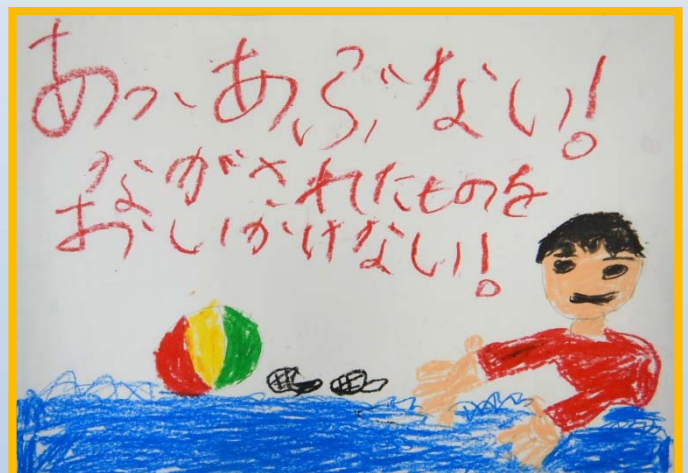 あっ、あぶない!
ながされたものを
おいかけない!